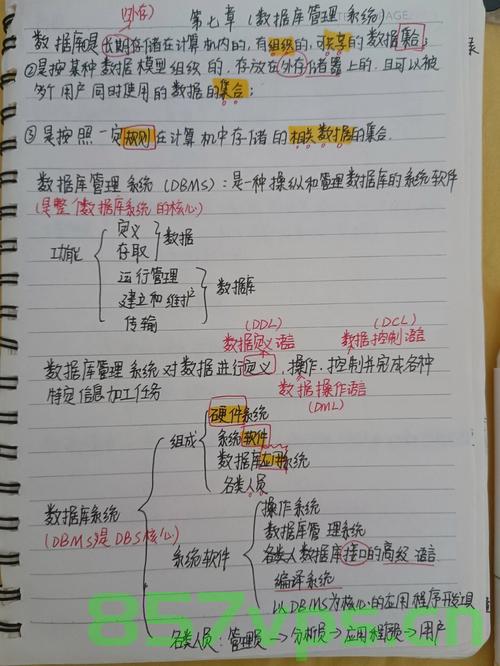 (外存)
第七章(数据库管理系统)
数据库是长期存储在计算机内的,有组织的,可共享的数据集合;
②是按某种数据模型组织的,存放在外存储器上的,且可以被
多个用户同时使用的数据的集合;
③是按照一定规则在计算机中存储的相关数据的集合.
数据库管理系统(DBMS):是一种操纵和管理数据库的系统软件
(是整个数据库系统的核心)
功能
定义
存取
数据
运行管理
建立和维护
数据库
传输
(DDL)
(DCL)
数据定义语言
数据控制语言
数据库管理系统对数据进行定义,操作,控制并完成各种
特定信息加工任务
数据操作语言
(DML)
数据库系统
(DBMS是DBS核心)
组成
硬件系统
系统软件
数据库应用系统
各类人员
系统软件
操作系统
数据库管理系统
各类人数据库接口的高级语言
编译系统
以DBMS为核心的应用程序开发工具
各类人员:管理员→分析员→应用程序员→用户
857vps.cn